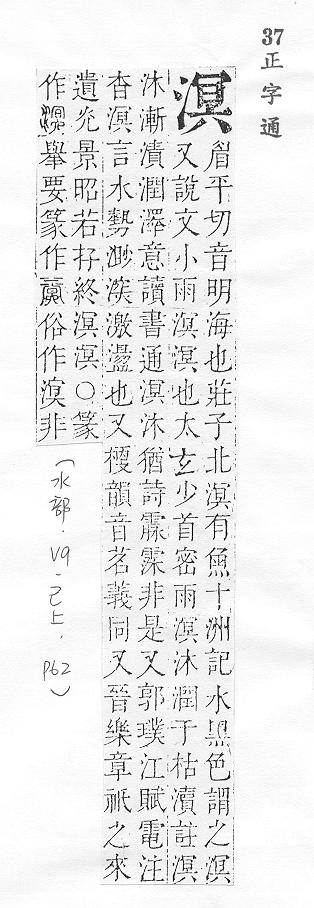 37 正字通
溟
眉平切音明海也莊子北溟有魚十洲記水黑色謂之溟
又說文小雨溟溟也太玄少首密雨溟沐潤于枯瀆註溟
沐漸漬潤澤意讀書通溟沐猶詩霢霂非是又郭璞江賦電注
杳溟言水勢渺激盪也又梗韻音茗義同又晉樂章祇之來
遺光景昭若存終溟溟○篆
作舉要篆作俗作非
(水部.V9.己上.P62)